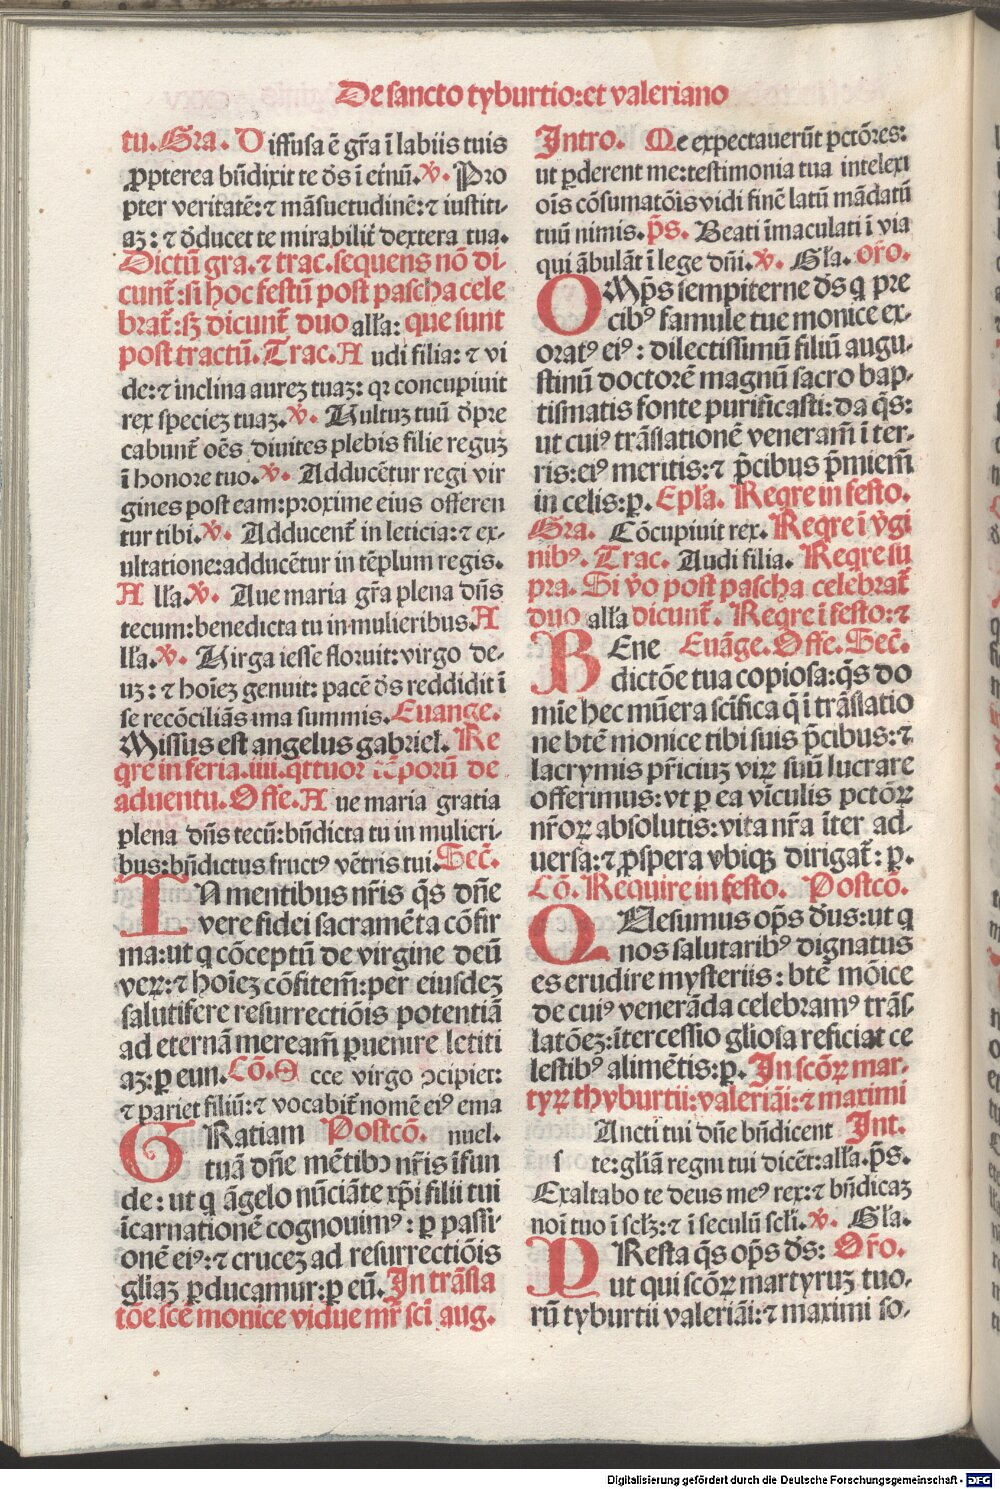 De sancto tyburtio: et valeriano
tu. Gra. Diffusa ē gr̄a ī labiis tuis
ꝓpterea bn̄dixit te ds̄ ī eīnū. ꝟ. Pro
pter veritatē: ⁊ māsuetudinē: ⁊ iustiti-
aꝫ: ⁊ ꝺducet te mirabilit̄ dextera tua.
Dictū gra. ⁊ trac. sequens nō di-
cunt̄: si hoc festū post pascha cele
brat̄: sꝫ dicunt̄ duo all'a: que sunt
post tractū. Trac. Audi filia: ⁊ vi
de: ⁊ inclina aureꝫ tuaꝫ: qꝛ concupiuit
rex specieꝫ tuaꝫ. ꝟ. Vultuꝫ tuū ꝺpre
cabunt̄ oēs diuites plebis filie reguꝫ
ī honore tuo. ꝟ. Adducētur regi vir
gines post eam: proxime eius offeren
tur tibi. ꝟ. Adducent̄ in leticia: ⁊ ex-
ultatione: adducētur in tēplum regis.
All'a. ꝟ. Aue maria gr̄a plena dn̄s
tecum: benedicta tu in mulieribus. A
ll'a. ꝟ. Virga iesse floruit: virgo de-
uꝫ: ⁊ hoīeꝫ genuit: pacē ds̄ reddidit ī
se recōciliās ima summis. Euange.
Missus est angelus gabriel. Re
q̄re in feria. iiii. qttuor tēporū de
aduentu. Offe. Aue maria gratia
plena dn̄s tecū: bn̄dicta tu in mulieri-
bus: bn̄dictus fruct⁹ vētris tui. Sec̄.
IN mentibus nr̄is q̄s dn̄e
vere fidei sacramēta cōfir
ma: ut q cōceptū de virgine deū
veꝝ: ⁊ hoīeꝫ cōfitem̄: per eiusdeꝫ
salutifere resurrectiōis potentiā
ad eternā meream̄ ꝑuenire letiti
aꝫ: ꝑ eun. Cō. Ecce virgo ↄcipiet:
⁊ pariet filiū: ⁊ vocabit̄ nomē ei⁹ ema
GRatiam Postcō. nuel.
tuā dn̄e mētibꝫ nr̄is īfun
de: ut q āgelo nūciāte xp̄i filii tui
īcarnationē cognouim⁹: ꝑ passi-
onē ei⁹: ⁊ cruceꝫ ad resurrectiōis
gliaꝫ ꝑducamur: ꝑ eū. In trāsla
tōe scē monice vidue mr̄ sci aug.
Intro. Me expectauerūt pctōres:
ut ꝑderent me: testimonia tua intelexi
oīs cōsumatōis vidi finē latū mādatū
tuū nimis. p̄s. Beati īmaculati ī via
qui ābulāt ī lege dn̄i. ꝟ. Gl'a. Or̄o.
OMp̄s sempiterne ds̄ q pre
cib⁹ famule tue monice ex-
orat⁹ ei⁹: dilectissimū filiū augu-
stinū doctorē magnū sacro bap-
tismatis fonte purificasti: da q̄s:
ut cui⁹ trāslationē veneram̄ ī ter-
ris: ei⁹ meritis: ⁊ p̄cibus p̄miem̄
in celis: ꝑ. Epl'a. Reqre in festo.
Gra. Cōcupiuit rex. Reqre ī v̄gi
nib⁹. Trac. Audi filia. Reqre su
pra. Si v̄o post pascha celebrat̄
duo all'a dicunt̄. Reqre ī festo: ⁊
BEne Euāge. Offe. Sec̄.
dictōe tua copiosa: q̄s do
mīe hec mūera sctīfica q̄ ī trāslatio
ne btē monice tibi suis p̄cibus: ⁊
lacrymis pr̄iciuꝫ viꝝ suū lucrare
offerimus: vt ꝑ ea vīculis pctōꝝ
nr̄oꝝ absolutis: vita nr̄a īter ad-
uersa: ⁊ ꝓspera vbiqꝫ dirigat̄: ꝑ.
Cō. Require in festo. Postcō.
QUesumus op̄s ds̄: ut q
nos salutarib⁹ dignatus
es erudire mysteriis: btē mōice
de cui⁹ venerāda celebram⁹ trās
latōeꝫ: ītercessio gliosa reficiat ce
lestib⁹ alimētis: ꝑ. In scōꝝ mar-
tyꝝ thyburtii: valeriāi: ⁊ maximi
Ancti tui dn̄e bn̄dicent Int.
s te: gliā regni tui dicēt: all'a. p̄s.
Exaltabo te deus me⁹ rex: ⁊ bn̄dicaꝫ
noī tuo ī scl'ꝫ: ⁊ ī seculū scl'i. ꝟ. Gl'a.
PResta q̄s op̄s ds̄: Or̄o.
ut qui scōꝝ martyruꝫ tuo-
rū tyburtii valeriāi: ⁊ maximi so-
Digitalisierung gefördert durch die Deutsche Forschungsgemeinschaft - DFG